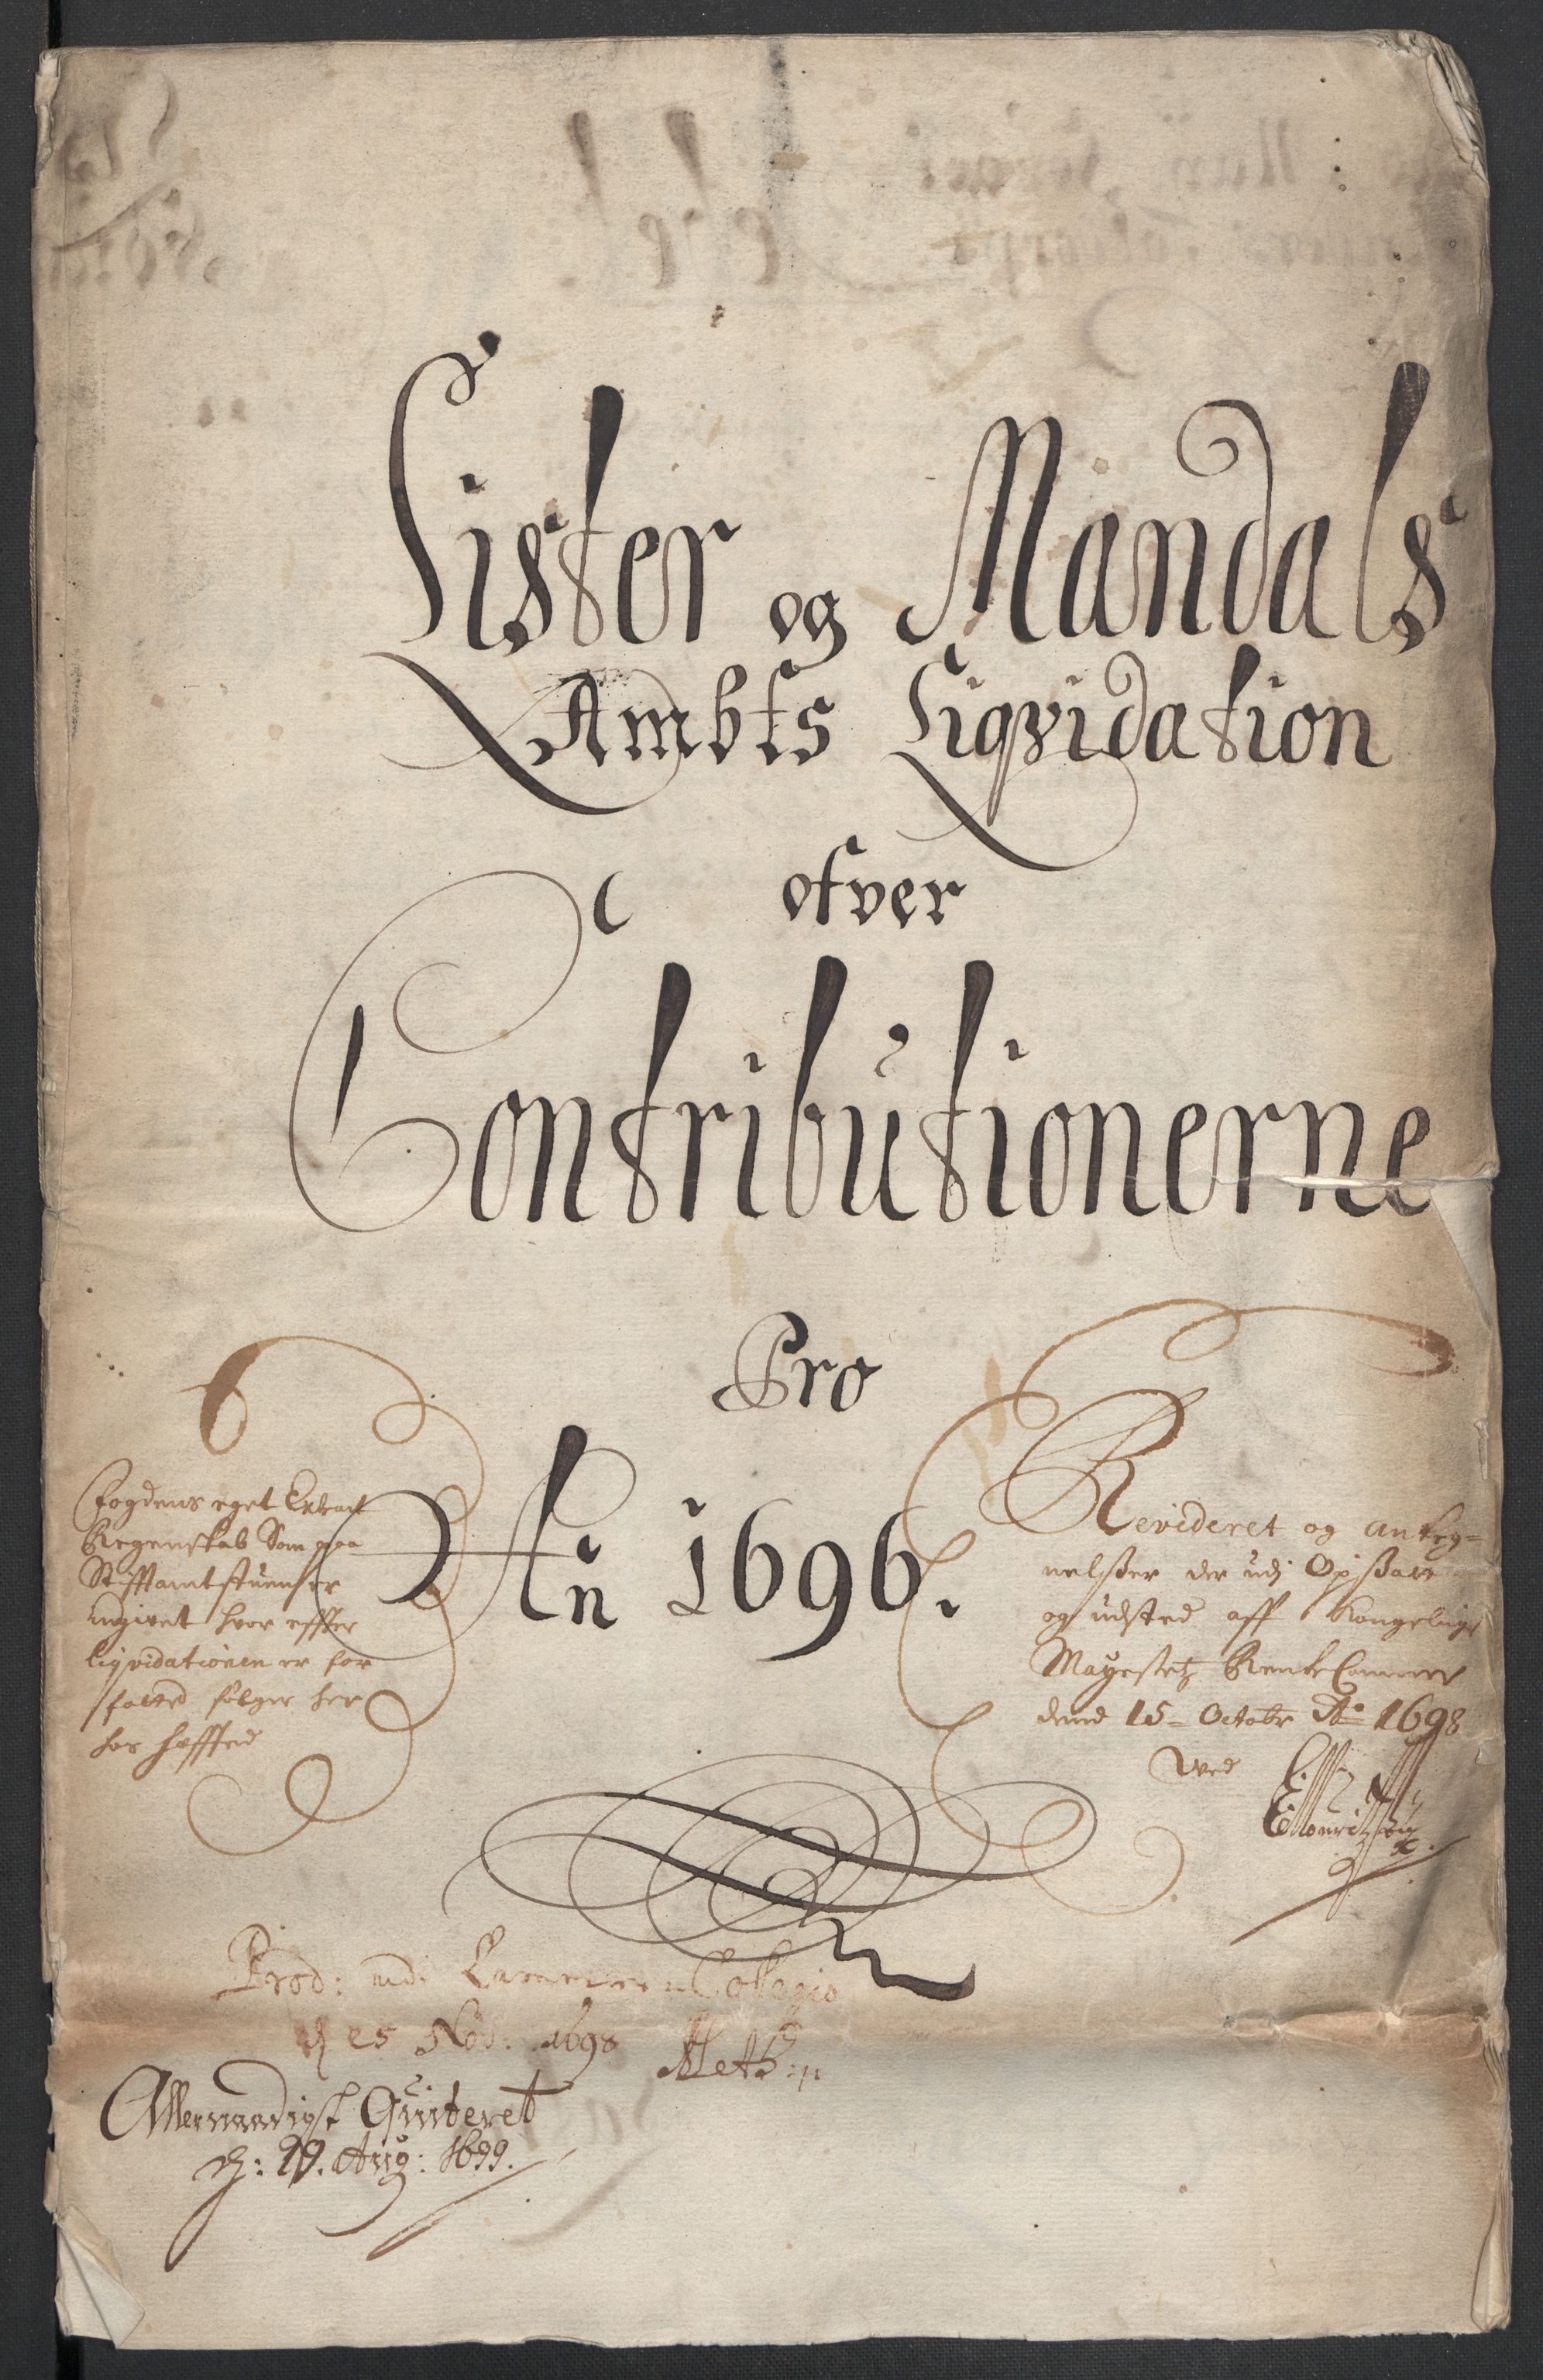 Lister og Mandals
Ambts Liqvidation
ofver
Contributionerne
Pro
An 1696.
Fogdens eget Extract
Regenskab Som paa
Stifftamtstuen er
udgivet hvor effter
liqvidationen er for
fatted følger her
hos heffted
Revideret og Anteg=
nelsßer der udi Opßatt
og udsted aff Kongelig
Mayestetz Rente Cammer
dend 15 = Octobr Ao 1698
Ved
Prod: udi Cammer Collegio
d 25 Nov: 1698
Allernaadigst Qvitteret
d: 29. Aug: 1699.